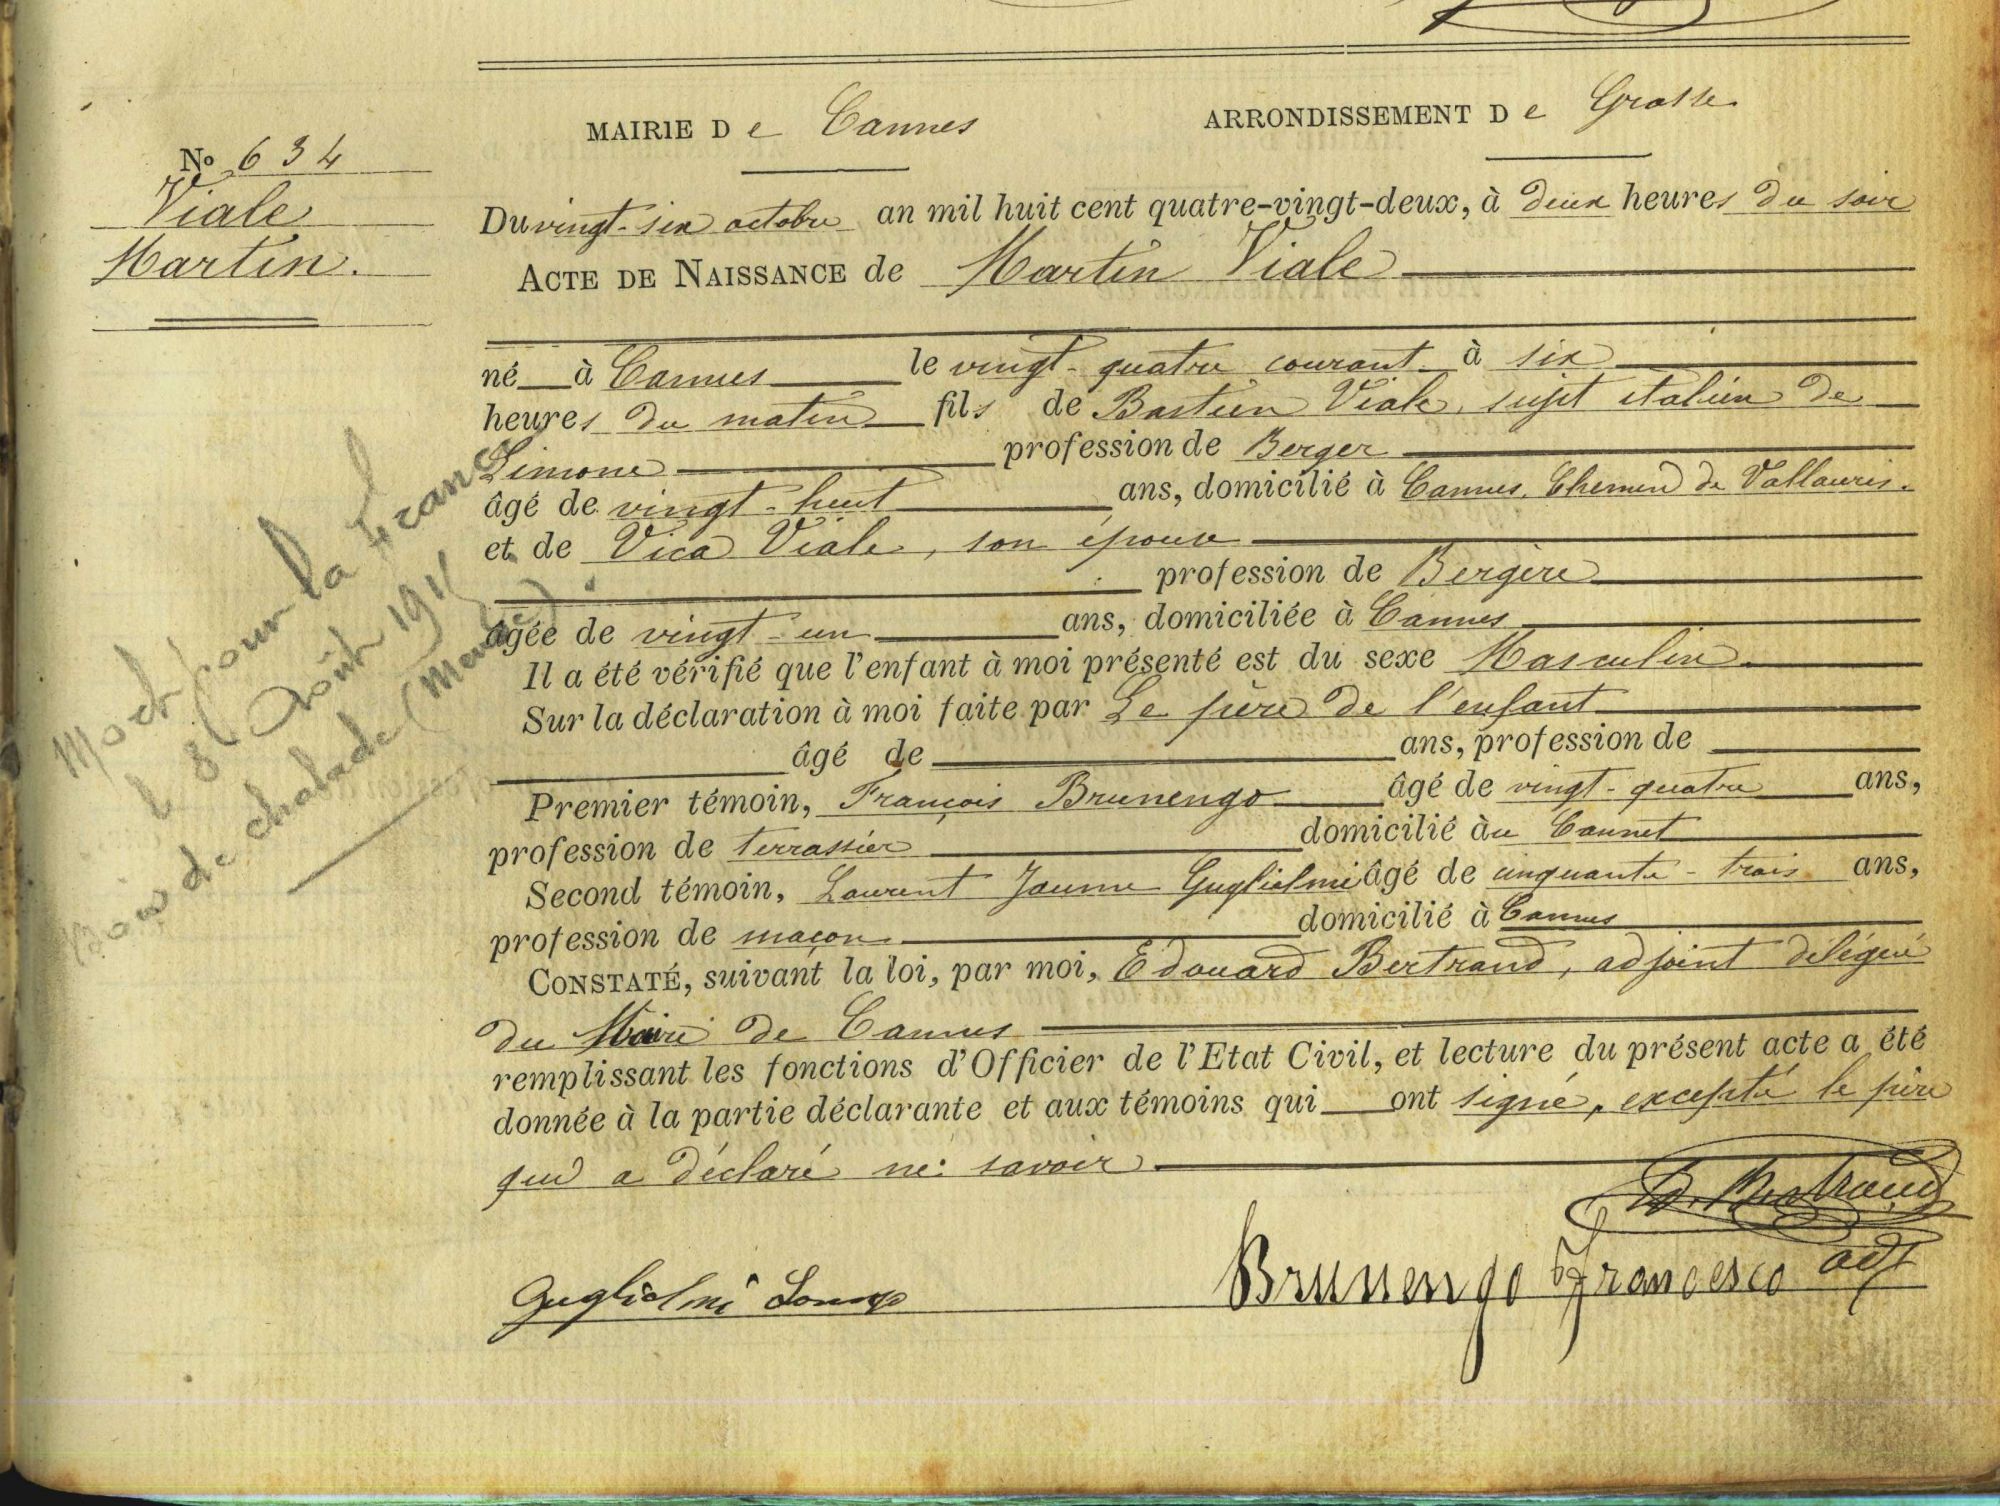 MAIRIE De Cannes ARRONDISSEMENT De Grasse
No 634
Viale
Martin.
Du vingt-six octobre an mil huit cent quatre-vingt-deux, à deux heures du soir
ACTE DE NAISSANCE de Martin Viale
né à Cannes le vingt-quatre courant à six
heures du matin fils de Bastien Viale, sujet italien de
Limone profession de Berger
âgé de vingt-huit ans, domicilié à Cannes, Chemin de Vallauris.
et de Vica Viale, son épouse
profession de Bergère
âgée de vingt-un ans, domiciliée à Cannes
Il a été vérifié que l'enfant à moi présenté est du sexe Masculin.
Sur la déclaration à moi faite par Le père de l'enfant
âgé de ans, profession de
Premier témoin, François Brunengo âgé de vingt-quatre ans,
profession de terrassier domicilié àu Cannet
Second témoin, Laurent Jaume Guglielmi âgé de cinquante-trois ans,
profession de maçon domicilié à Cannes
CONSTATÉ, suivant la loi, par moi, Edouard Bertrand, adjoint délégué
du Maire de Cannes
remplissant les fonctions d'Officier de l'Etat Civil, et lecture du présent acte a été
donnée à la partie déclarante et aux témoins qui ont signé, excepté le père
qui a déclaré ne savoir
Ed. Bertrand
adjt
Guglielmi
Brunengo Francesco
Mort pour la France
le 8 Août 191
Bois de chalade (Meuse).